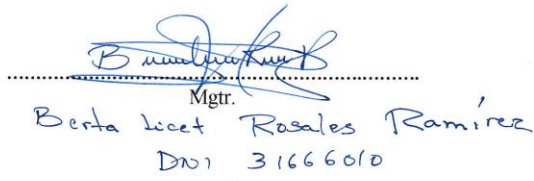 Mgtr.
Berta Licet Rosales Ramírez
DNI 31666010